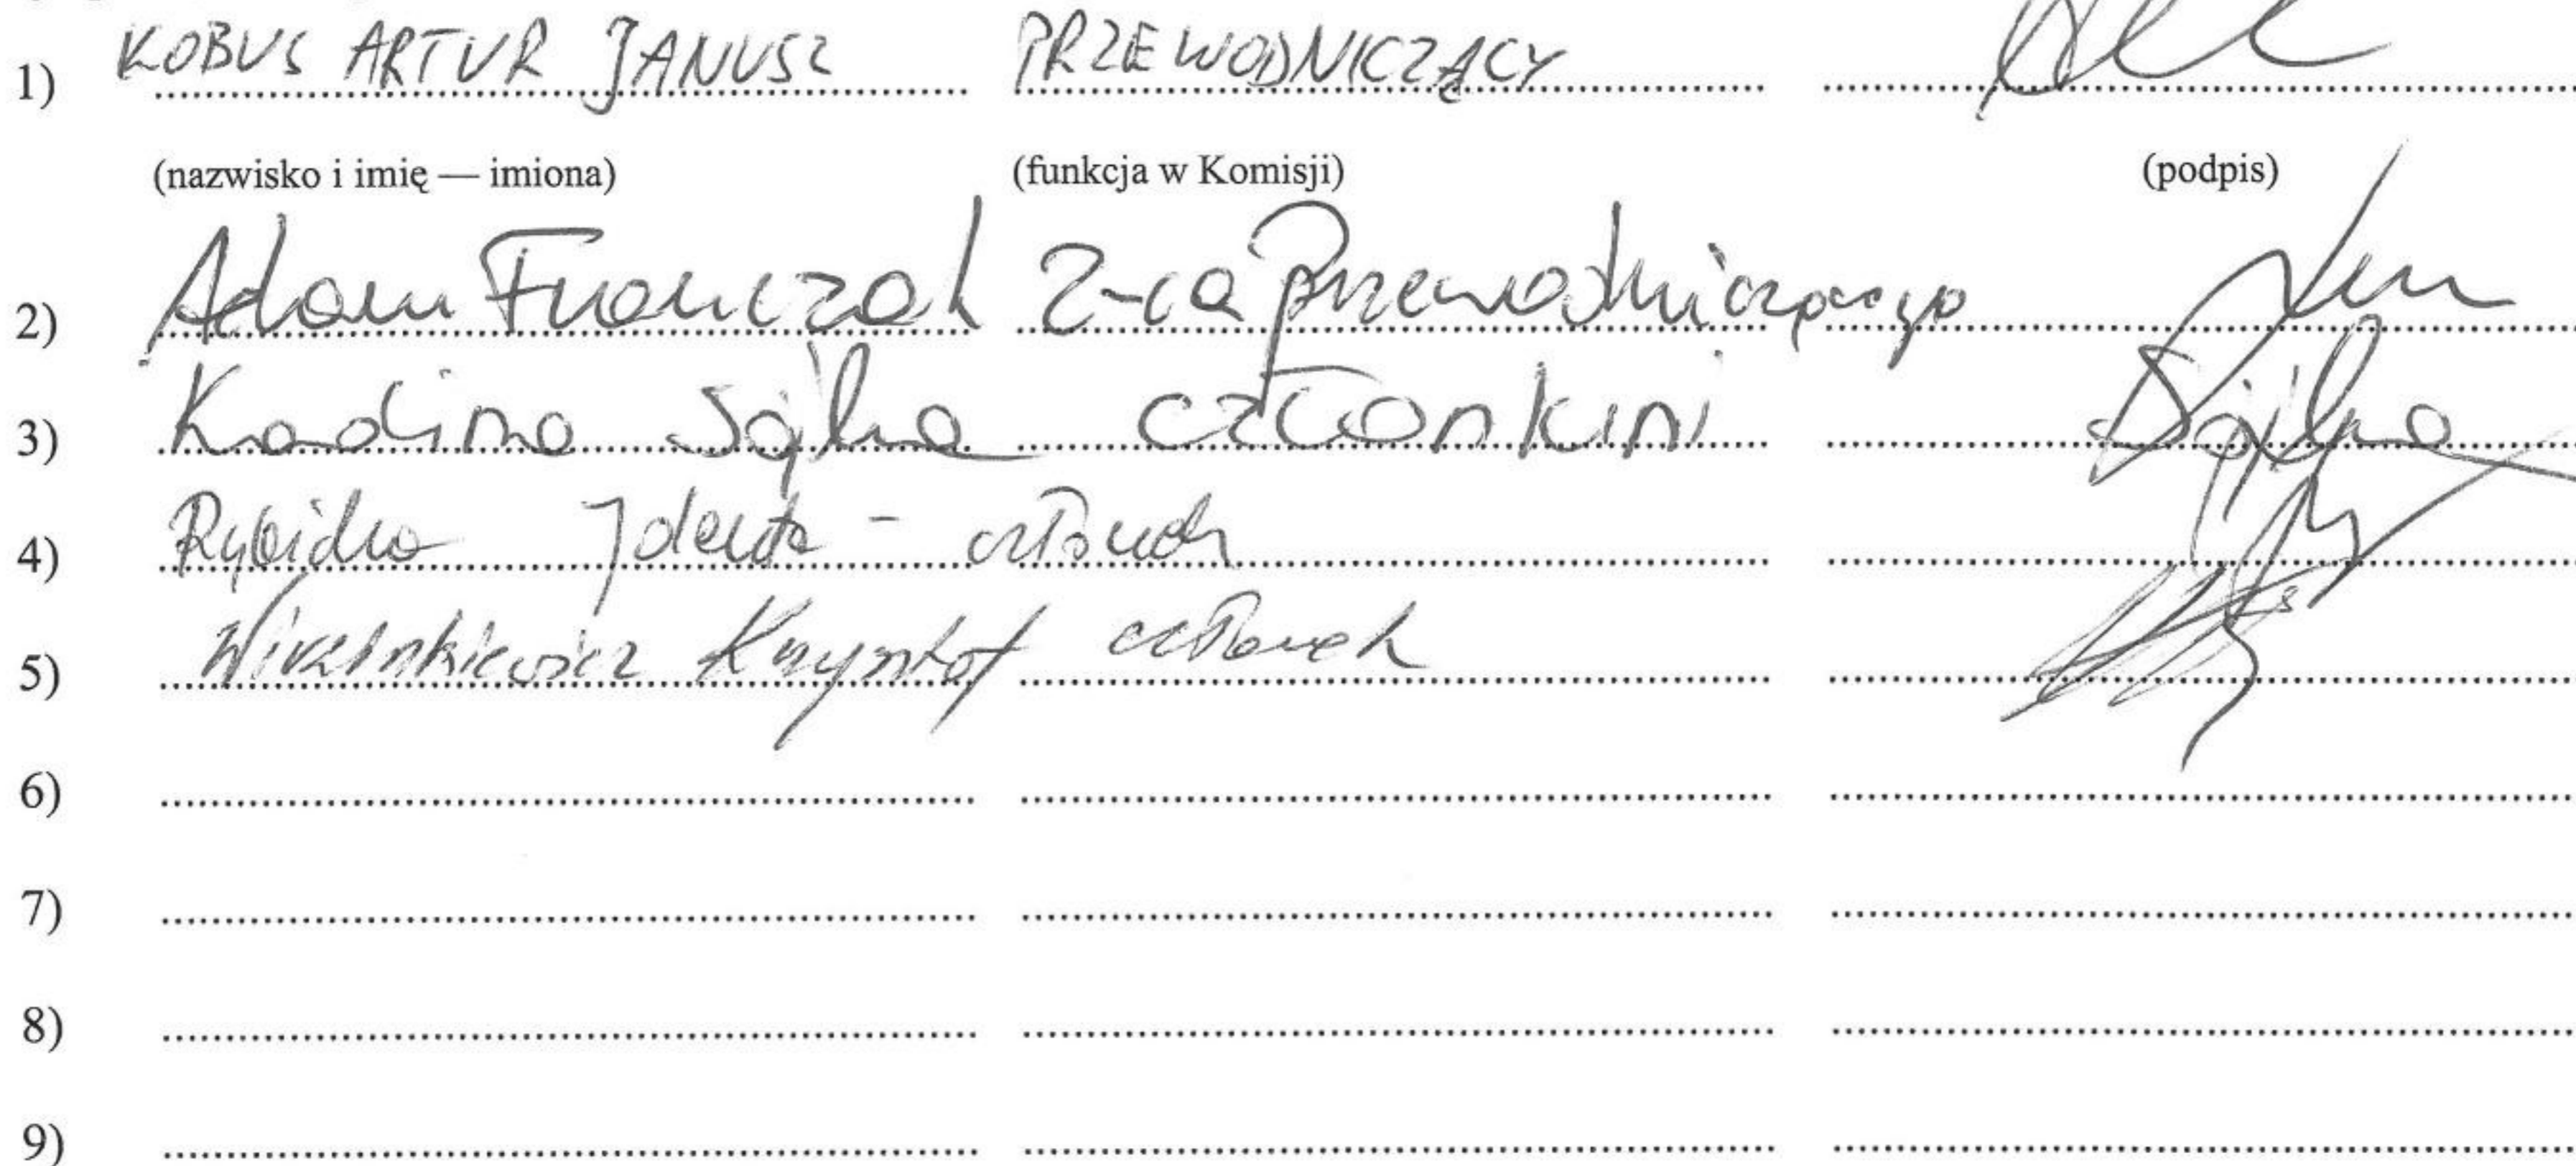 1) KOBUS ARTUR JANUSZ PRZEWODNICZĄCY
(nazwisko i imię — imiona) (funkcja w Komisji) (podpis)
2) Adam Franczak Z-ca Przewodniczącego
3) Sójka członkini
4) Jolanta - członek
5) Krzysztof członek
6)
7)
8)
9)